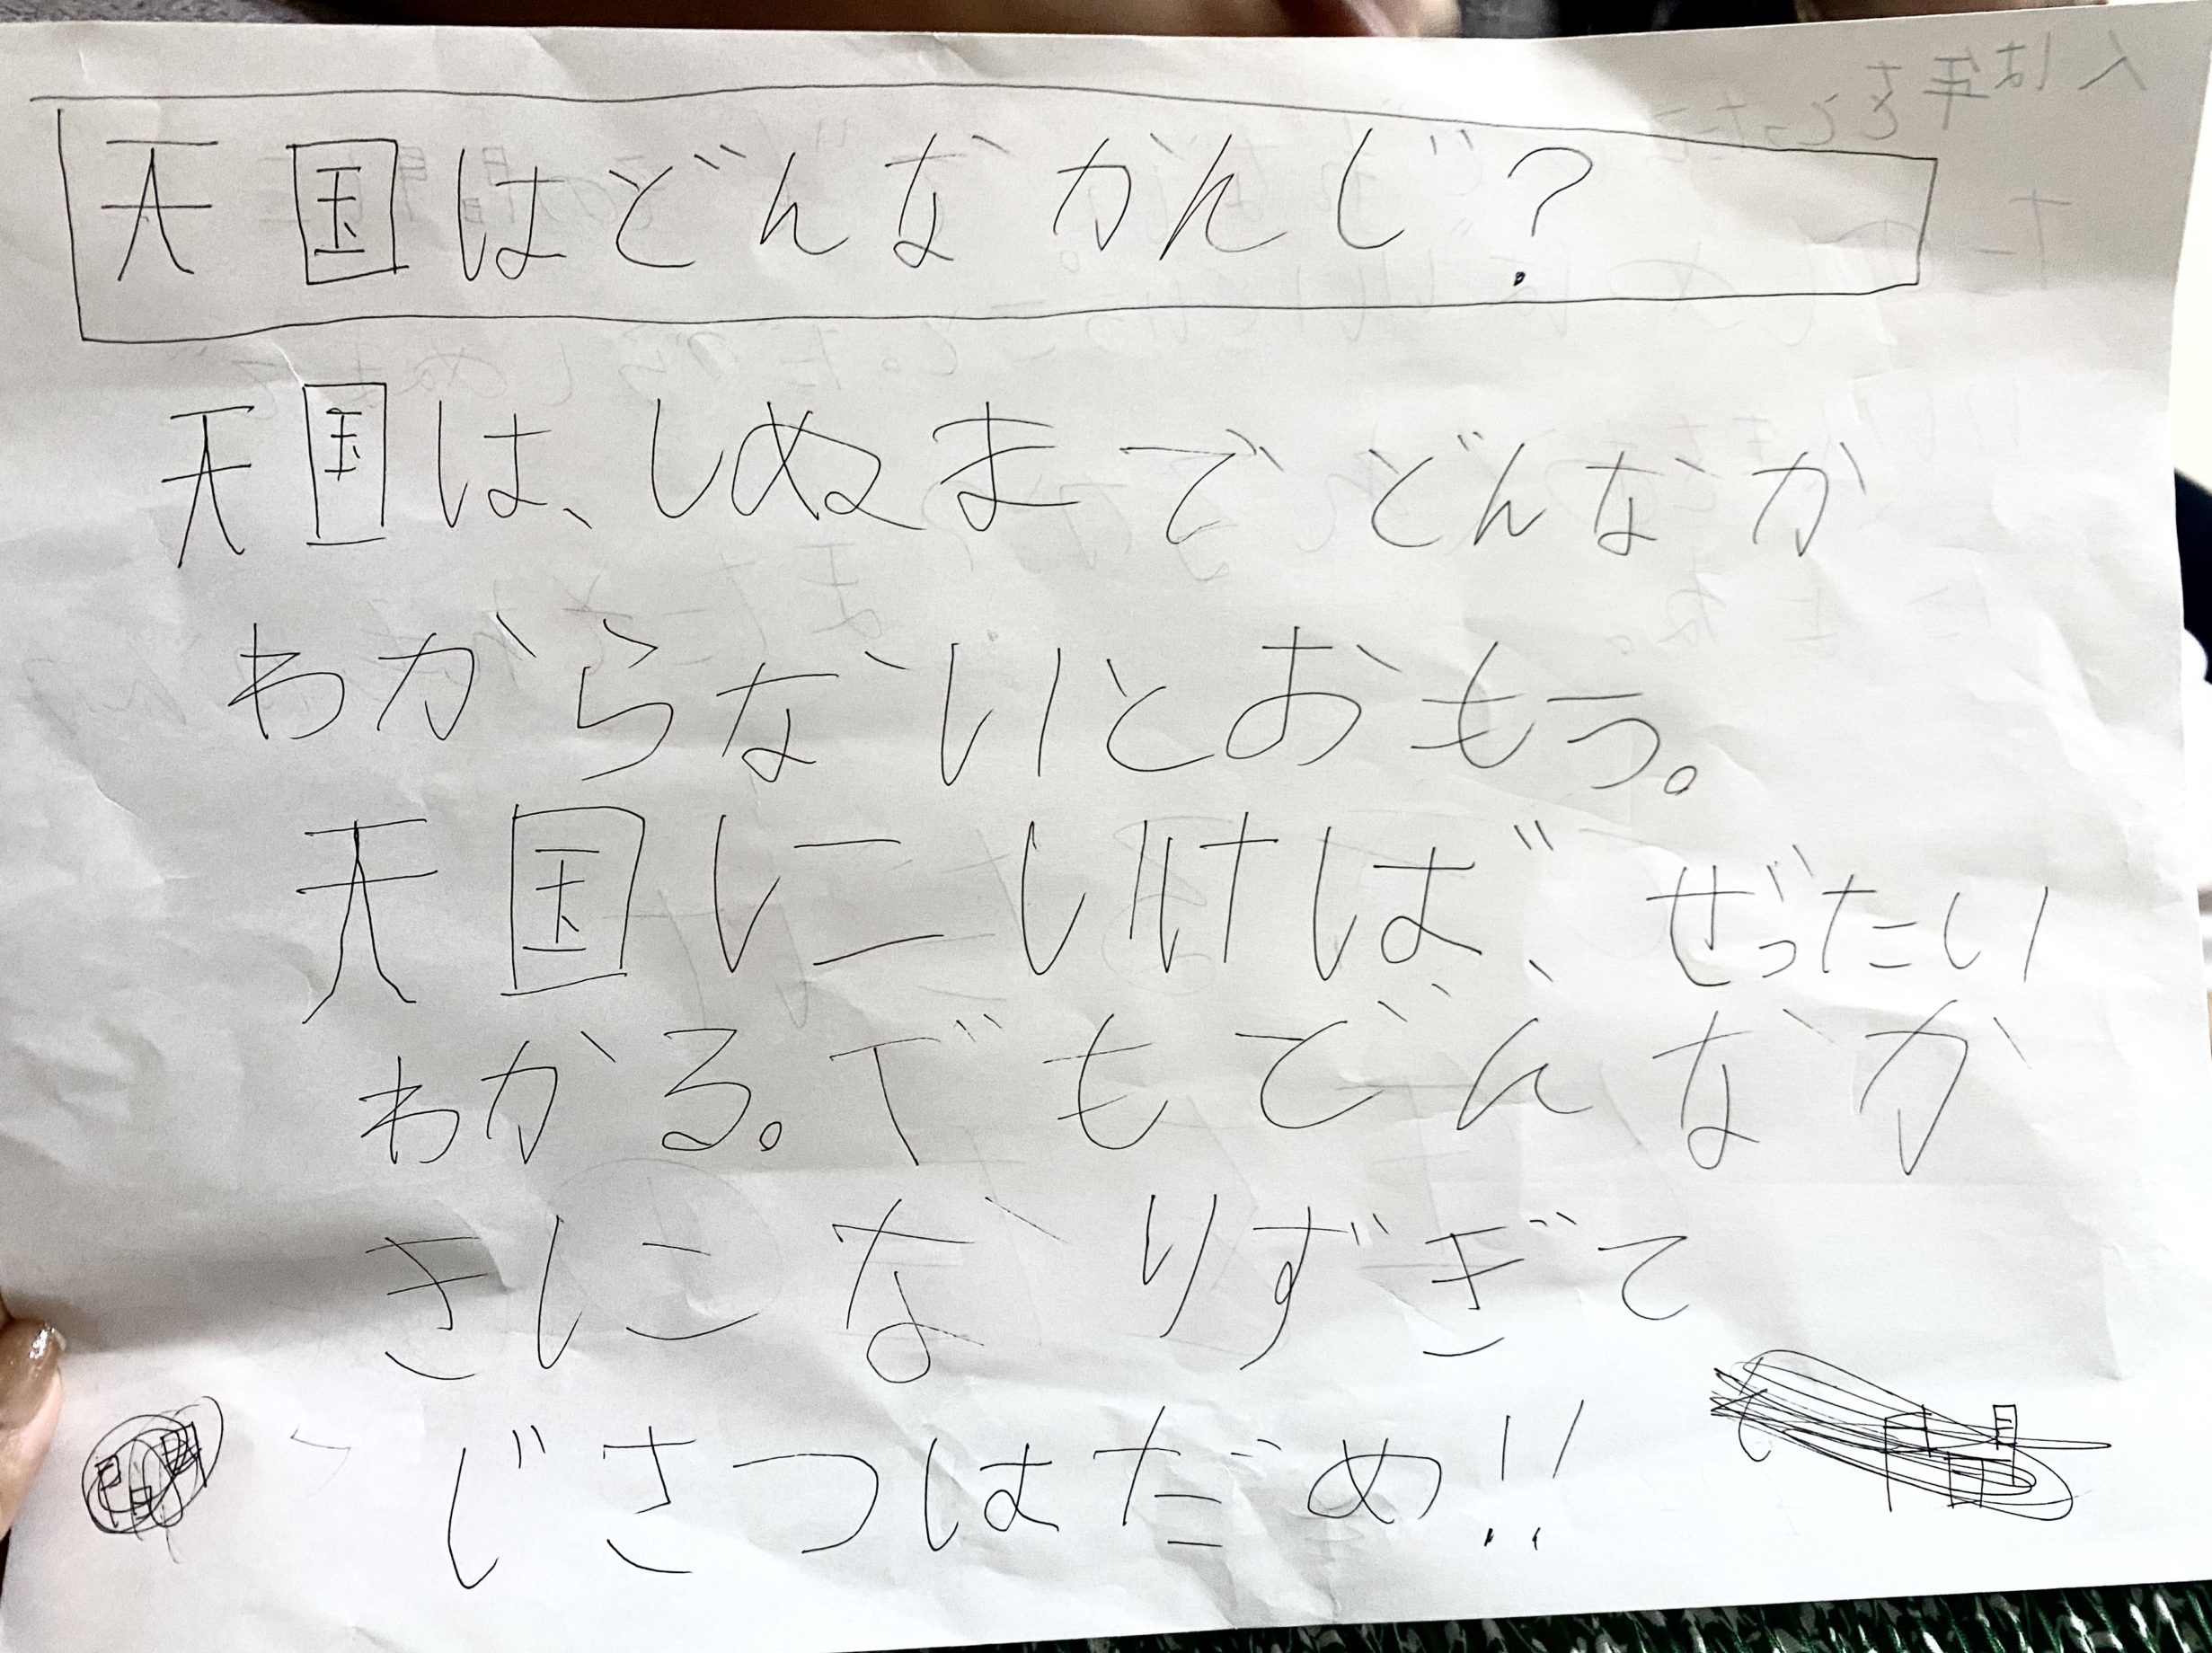 天国はどんなかんじ?
天国は、しぬまでどんなか
わからないとおもう。
天国にいけば、ぜったい
わかる。でもどんなか
きになりずぎて
じさつはだめ!!